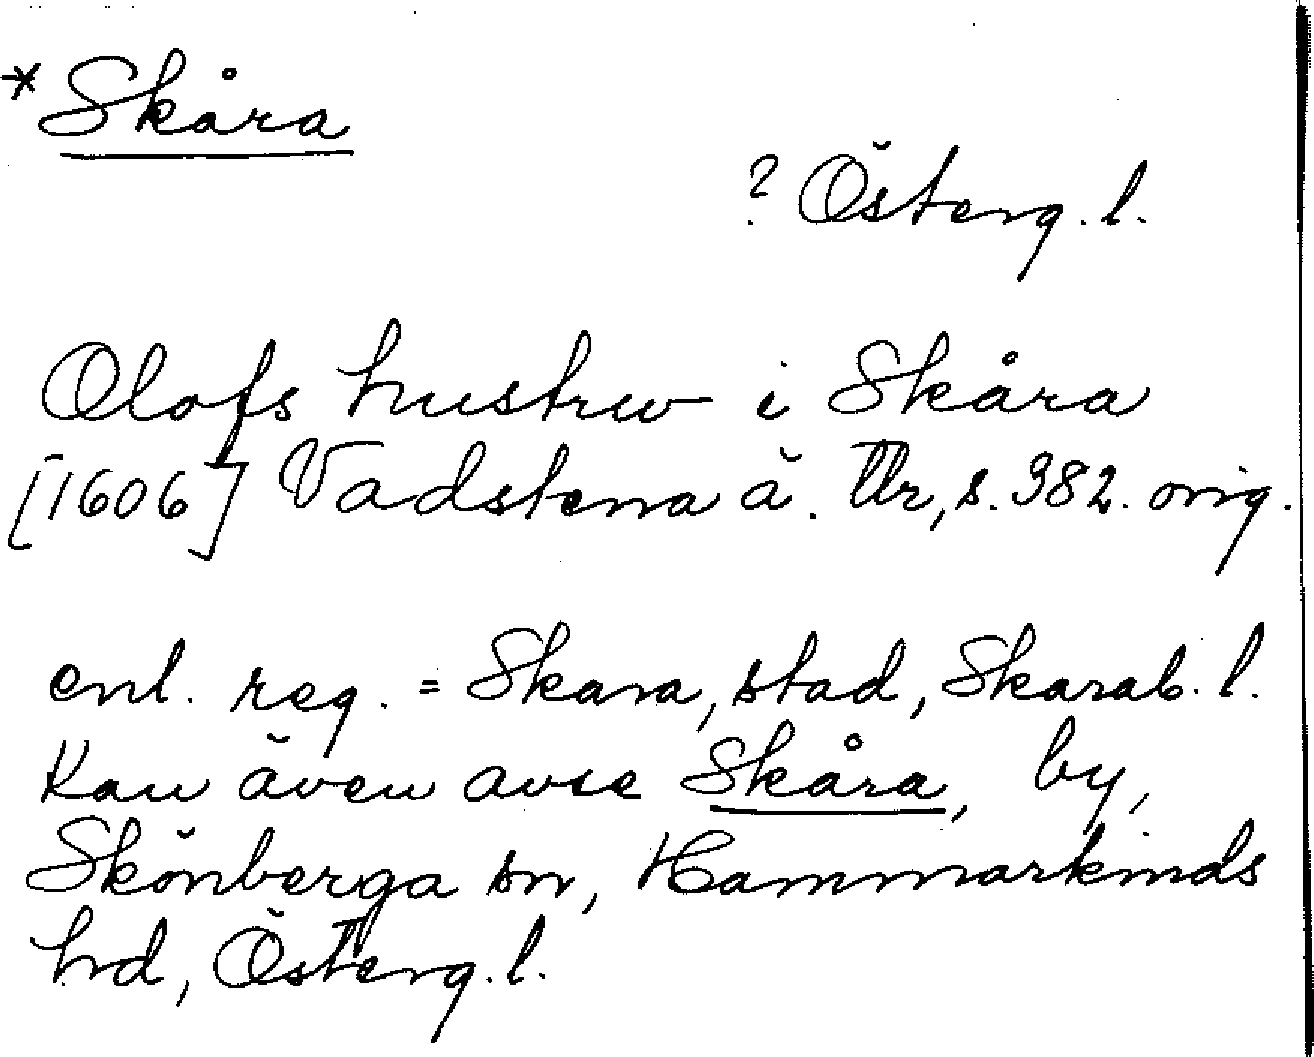 *Skåra
? Österg. l.
Olofs hustrw i Skåra
[1606] Vadstena ä. Tb, s. 382. orig.
enl. reg. = Skara, stad, Skarab. l.
Kan även avse Skåra, by,
Skönberga sn, Hammarkinds
hrd, Österg. l.